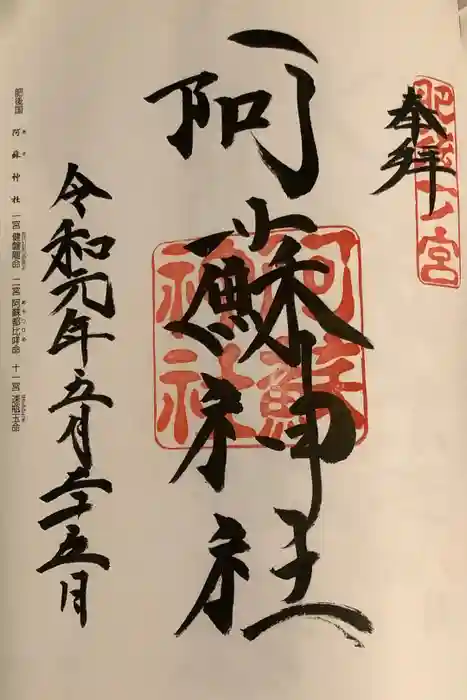 奉拝
肥後一宮
阿蘇神社
阿蘇
神社
令和元年五月二十五日
肥後国 阿蘇神社 一宮 健磐龍命 二宮 阿蘇都比咩命 十一宮 速瓶玉命